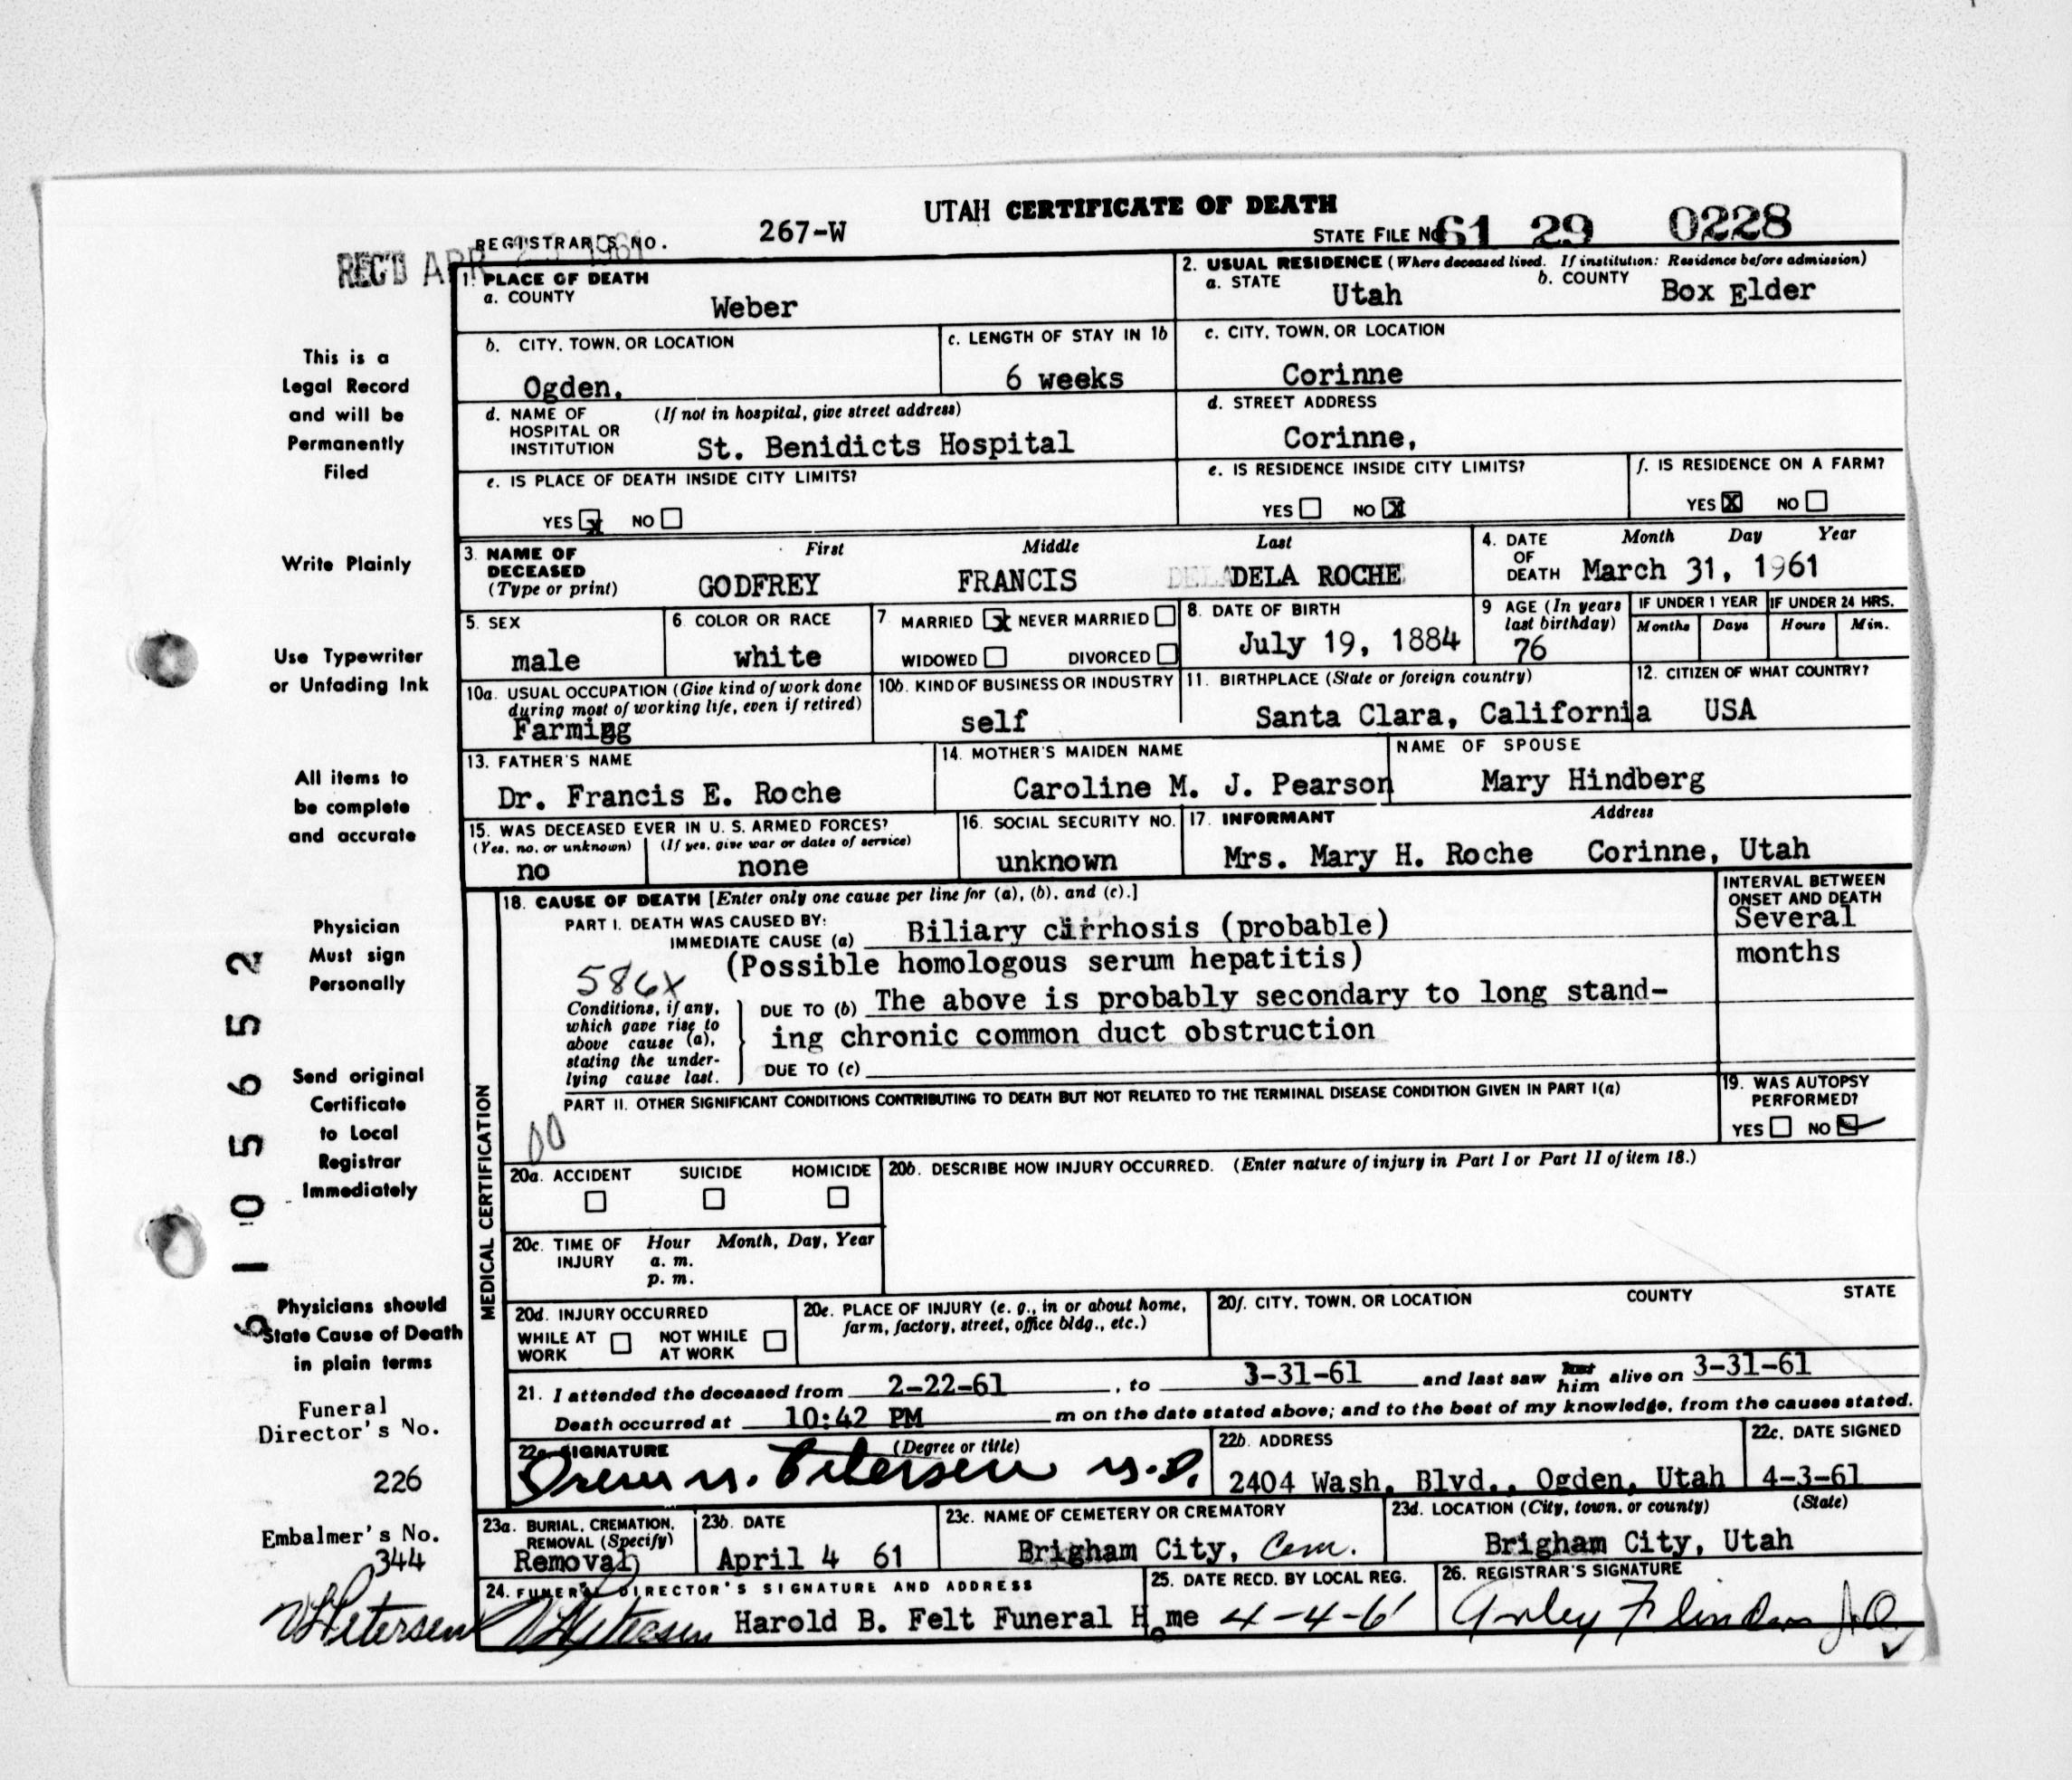 UTAH CERTIFICATE OF DEATH
REGISTRAR'S NO. 267-W
STATE FILE NO. 61 29 0228
REC'D APR 1961
1. PLACE OF DEATH
a. COUNTY
Weber
2. USUAL RESIDENCE (Where deceased lived. If institution: Residence before admission)
a. STATE Utah b. COUNTY Box Elder
b. CITY, TOWN, OR LOCATION
Ogden,
c. LENGTH OF STAY IN 1b
6 weeks
c. CITY, TOWN, OR LOCATION
Corinne
d. NAME OF HOSPITAL OR INSTITUTION (If not in hospital, give street address)
St. Benidicts Hospital
d. STREET ADDRESS
Corinne,
e. IS PLACE OF DEATH INSIDE CITY LIMITS?
YES x NO
e. IS RESIDENCE INSIDE CITY LIMITS?
YES NO X
f. IS RESIDENCE ON A FARM?
YES X NO
3. NAME OF DECEASED (Type or print)
First Middle Last
GODFREY FRANCIS DELA ROCHE
4. DATE OF DEATH Month Day Year
March 31, 1961
5. SEX
male
6. COLOR OR RACE
white
7. MARRIED x NEVER MARRIED
WIDOWED DIVORCED
8. DATE OF BIRTH
July 19, 1884
9 AGE (In years last birthday)
76
IF UNDER 1 YEAR
Months Days
IF UNDER 24 HRS.
Hours Min.
10a. USUAL OCCUPATION (Give kind of work done during most of working life, even if retired)
Farming
10b. KIND OF BUSINESS OR INDUSTRY
self
11. BIRTHPLACE (State or foreign country)
Santa Clara, California
12. CITIZEN OF WHAT COUNTRY?
USA
13. FATHER'S NAME
Dr. Francis E. Roche
14. MOTHER'S MAIDEN NAME
Caroline M. J. Pearson
NAME OF SPOUSE
Mary Hindberg
15. WAS DECEASED EVER IN U. S. ARMED FORCES?
(Yes, no, or unknown) (If yes, give war or dates of service)
no none
16. SOCIAL SECURITY NO.
unknown
17. INFORMANT Address
Mrs. Mary H. Roche Corinne, Utah
MEDICAL CERTIFICATION
18. CAUSE OF DEATH [Enter only one cause per line for (a), (b), and (c).]
PART I. DEATH WAS CAUSED BY:
IMMEDIATE CAUSE (a) Biliary cirrhosis (probable)
(Possible homologous serum hepatitis)
586X
Conditions, if any, which gave rise to above cause (a), stating the underlying cause last.
DUE TO (b) The above is probably secondary to long stand-
ing chronic common duct obstruction
DUE TO (c)
INTERVAL BETWEEN ONSET AND DEATH
Several
months
PART II. OTHER SIGNIFICANT CONDITIONS CONTRIBUTING TO DEATH BUT NOT RELATED TO THE TERMINAL DISEASE CONDITION GIVEN IN PART I(a)
00
19. WAS AUTOPSY PERFORMED?
YES NO
20a. ACCIDENT SUICIDE HOMICIDE
20b. DESCRIBE HOW INJURY OCCURRED. (Enter nature of injury in Part I or Part II of item 18.)
20c. TIME OF INJURY Hour Month, Day, Year
a. m.
p. m.
20d. INJURY OCCURRED
WHILE AT WORK NOT WHILE AT WORK
20e. PLACE OF INJURY (e. g., in or about home, farm, factory, street, office bldg., etc.)
20f. CITY, TOWN, OR LOCATION COUNTY STATE
21. I attended the deceased from 2-22-61, to 3-31-61 and last saw him alive on 3-31-61
Death occurred at 10:42 PM m on the date stated above; and to the best of my knowledge, from the causes stated.
22a. SIGNATURE (Degree or title)
Petersen M.D.
22b. ADDRESS
2404 Wash. Blvd., Ogden, Utah
22c. DATE SIGNED
4-3-61
23a. BURIAL, CREMATION, REMOVAL (Specify)
Removal
23b. DATE
April 4 61
23c. NAME OF CEMETERY OR CREMATORY
Brigham City, Cem.
23d. LOCATION (City, town, or county) (State)
Brigham City, Utah
24. FUNERAL DIRECTOR'S SIGNATURE AND ADDRESS
Petersen Harold B. Felt Funeral Home
25. DATE RECD. BY LOCAL REG.
4-4-61
26. REGISTRAR'S SIGNATURE
This is a
Legal Record
and will be
Permanently
Filed
Write Plainly
Use Typewriter
or Unfading Ink
All items to
be complete
and accurate
Physician
Must sign
Personally
Send original
Certificate
to Local
Registrar
Immediately
Physicians should
State Cause of Death
in plain terms
Funeral
Director's No.
226
Embalmer's No.
344
Petersen
6105652